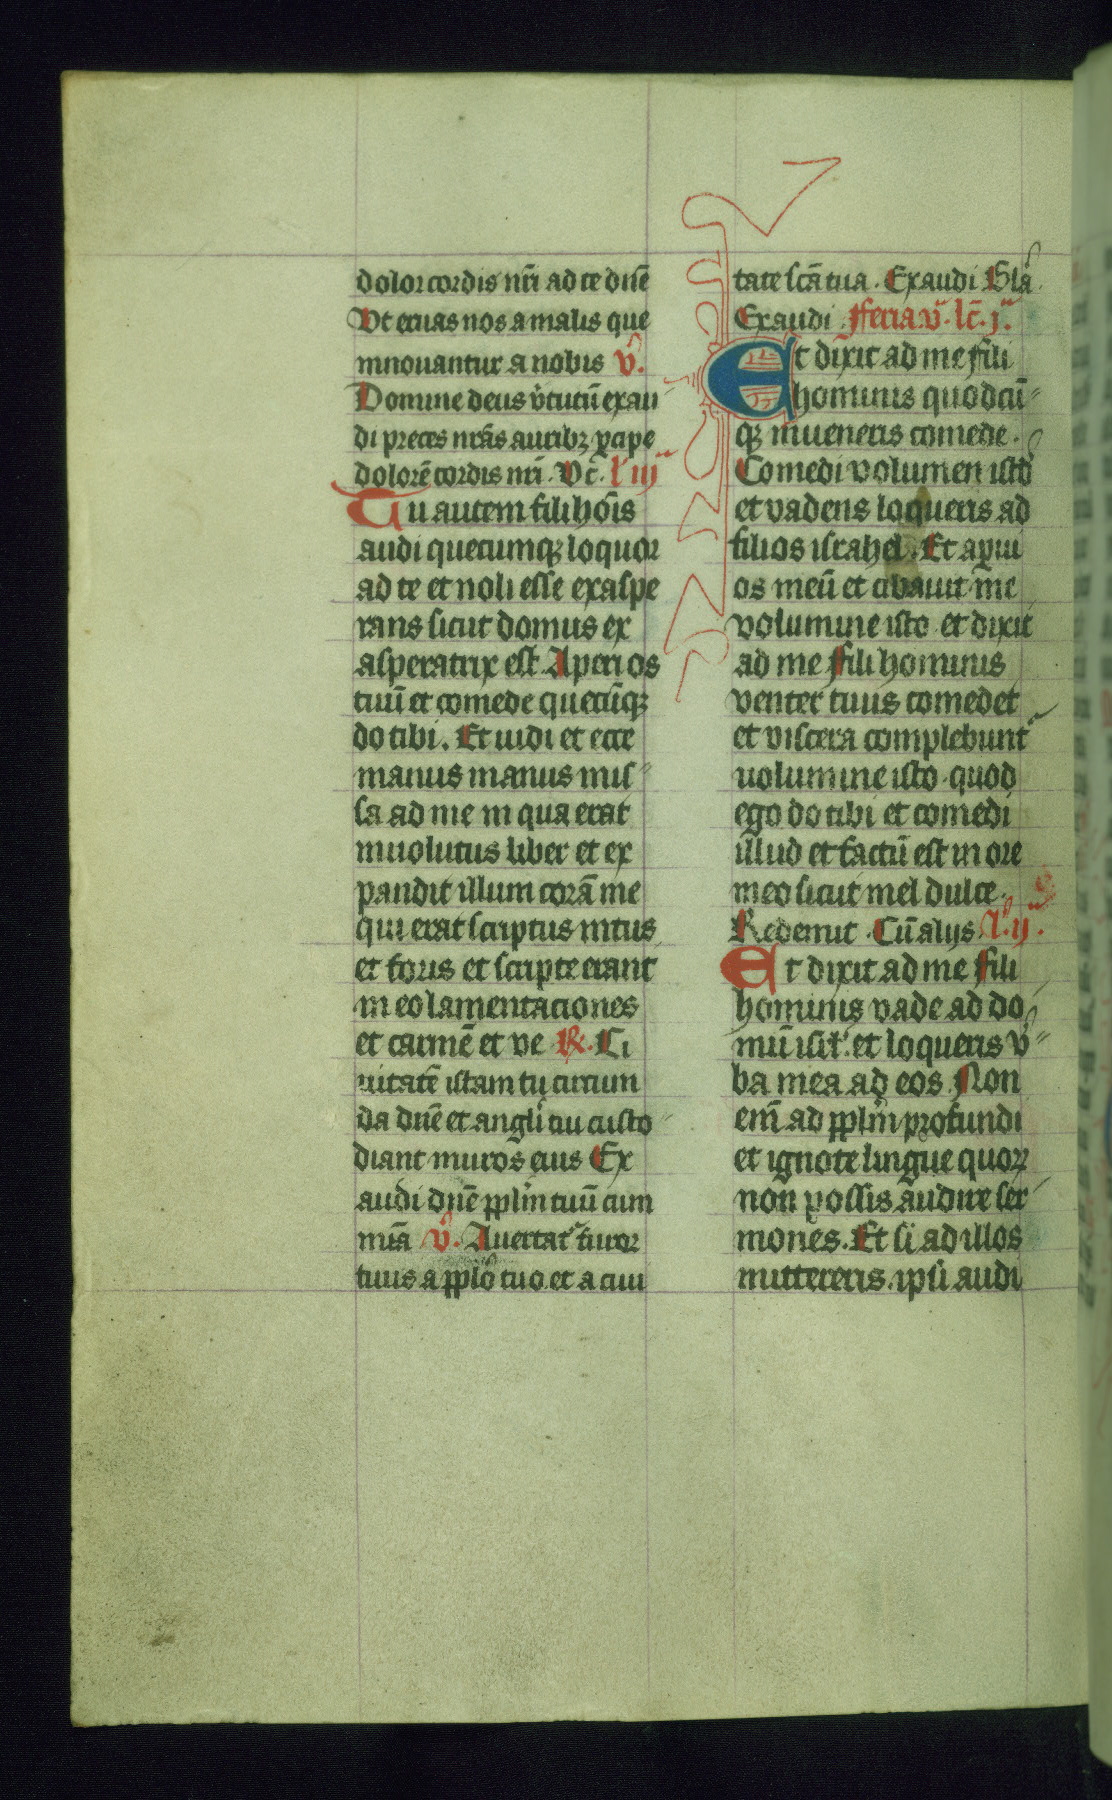 dolor cordis nr̄i ad te dn̄e
Vt eruas nos a malis que
innouantur a nobis v̾.
Domine deus v̾tutū exau
di preces nr̄as auribꝫ ꝑcipe
dolorē cordis nr̄i. Vt̄. l' iij
Tu autem fili hoīs
audi quecumqꝫ loquor
ad te et noli esse exaspe
rans sicut domus ex
asperatrix est Aperi os
tuū et comede quecūqꝫ
do tibi. Et uidi et ecce
manus manus mis
sa ad me in qua erat
inuolutus liber et ex
pandit illum corā me
qui erat scriptus intus
et foris et scripte erant
in eo lamentaciones
et carmē et ve ℟. Ci
uitatē istam tu circun
da dn̄e et angli tui custo
diant muros eius Ex
audi dn̄e ppl̄m tuū cum
mīa v̾. Auertat͛ furor
tuus a ppl̄o tuo et a ciui
tate sc̄a tua. Exaudi Gl̄a.
Exaudi. fferia.v. lc̄. j.
Et dixit ad me fili
hominis quodcū
qꝫ inueneris comede.
Comedi volumen istd̾
et vadens loqueris ad
filios israhel. Et aperui
os meū et cibauit me
volumine isto et dixit
ad me fili hominis
venter tuus comedet
et viscera complebunt͛
uolumine isto quod
ego do tibi et comedi
illud et factū est in ore
meo sicut mel dulce.
Redemit. Cū alijs l'.ij.
Et dixit ad me fili
hominis vade ad do
mū isr̄l. et loqueris v̾
ba mea ad eos. Non
em̄ ad ppl̄m profundi
et ignote lingue quoꝝ
non possis audire ser
mones. Et si ad illos
mittereris. ipsi audi